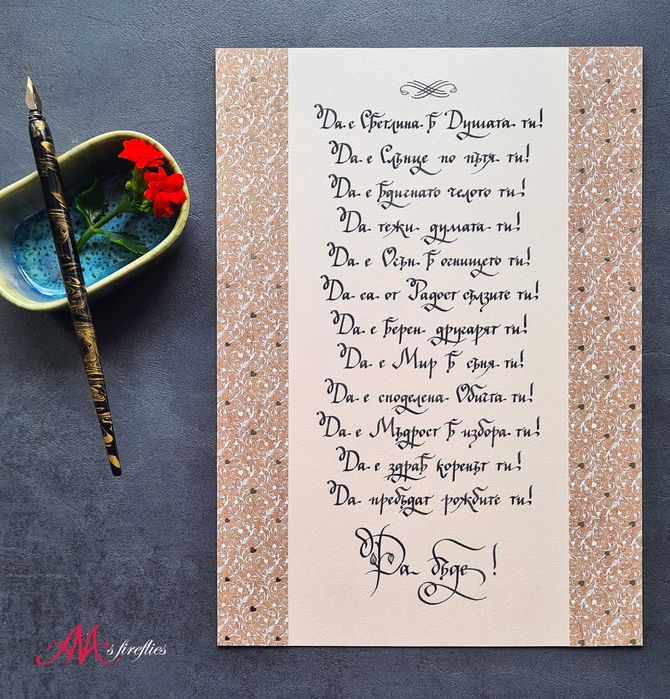 Да е Светлина в Душата ти!
Да е Слънце по пътя ти!
Да е вдигнато челото ти!
Да тежи думата ти!
Да е Огън в огнището ти!
Да са от Радост сълзите ти!
Да е верен другарят ти!
Да е Мир в съня ти!
Да е споделена Обичта ти!
Да е Мъдрост в избора ти!
Да е здрав коренът ти!
Да пребъдат рожбите ти!
Да бъде!
AAA's fireflies